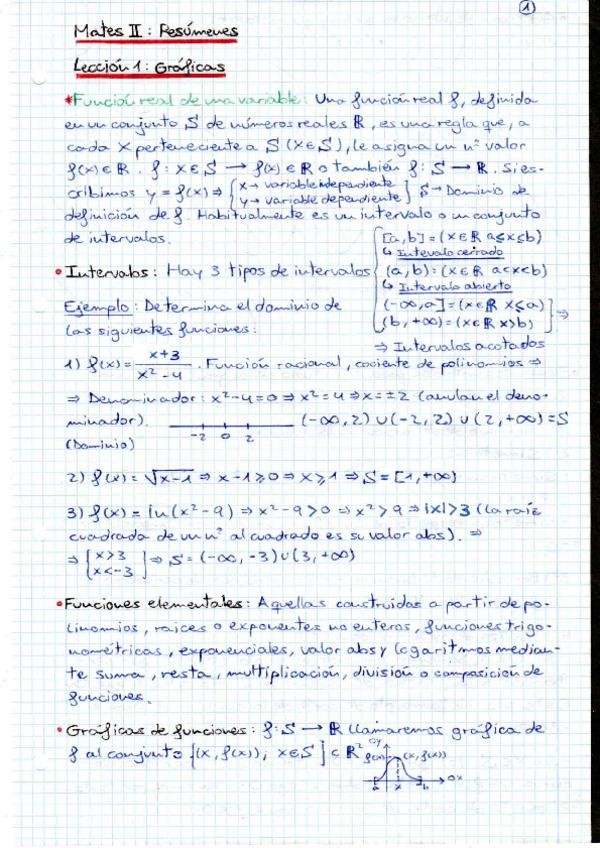 1
Mates II: Resúmenes
Lección 1: Gráficas
*Función real de una variable: Una función real f, definida
en un conjunto S de números reales ℝ, es una regla que, a
cada x perteneciente a S (x∈S), le asigna un nº valor
f(x)∈ℝ. f: x∈S → f(x)∈ℝ o también f: S → ℝ. Si es-
cribimos y = f(x) ⇒ {x → variable independiente
y → variable dependiente} S → Dominio de
definición de f. Habitualmente es un intervalo o un conjunto
de intervalos.
• Intervalos: Hay 3 tipos de intervalos
[a,b] = (x∈ℝ a≤x≤b)
↳ Intervalo cerrado
(a,b) = (x∈ℝ a<x<b)
↳ Intervalo abierto
(-∞,a] = (x∈ℝ x≤a)
(b,+∞) = (x∈ℝ x>b) ⇒
⇒ Intervalos acotados
Ejemplo: Determina el dominio de
las siguientes funciones:
1) f(x) = (x+3)/(x²-4). Función racional, cociente de polinomios ⇒
⇒ Denominador: x²-4=0 ⇒ x²=4 ⇒ x=±2 (anulan el deno-
minador). (-∞,2) ∪ (-2,2) ∪ (2,+∞) = S
-2 0 2
(Dominio)
2) f(x) = √(x-1) ⇒ x-1≥0 ⇒ x≥1 ⇒ S = [1,+∞)
3) f(x) = ln(x²-9) ⇒ x²-9>0 ⇒ x²>9 ⇒ |x|>3 (la raíz
cuadrada de un nº al cuadrado es su valor abs). ⇒
⇒ {x>3
x<-3} ⇒ S = (-∞,-3)∪(3,+∞)
• Funciones elementales: Aquellas construidas a partir de po-
linomios, raíces o exponentes no enteros, funciones trigo-
nométricas, exponenciales, valor abs y logaritmos median-
te suma, resta, multiplicación, división o composición de
funciones.
• Gráficas de funciones: f: S → ℝ llamaremos gráfica de
f al conjunto {(x, f(x)); x∈S} ⊂ ℝ²
OY
f(x) (x,f(x))
a x b OX